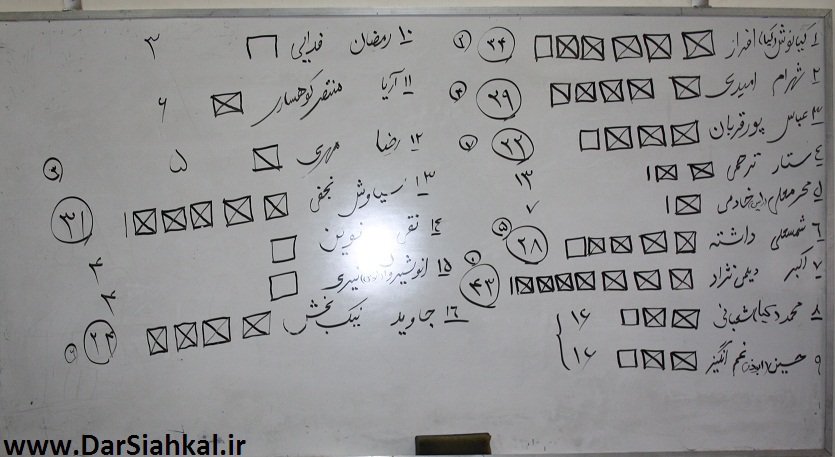 ۱ کیانوش (کیا) افراز ۳۴ ۲
۲ شهرام امیدی ۲۹ ۴
۳ عباس پورقربان ۲۲ ۷
۴ ستار ترحمی ۱۳
۵ خادمی ۷
۶ شمسعلی داشته ۲۸ ۵
۷ اکبر دیلمی نژاد ۴۳ ۱
۸ محمد (کیا) شعبانی ۱۴
۹ حسین غم انگیز ۱۴
۱۰ رمضان فدایی ۳
۱۱ آریا منتظر کوهساری ۶
۱۲ رضا مهری ۵
۱۳ سیاوش نجفی ۳۱ ۳
۱۴ نقی نوین ۴
۱۵ انوشیروان نیری ۴
۱۶ جاوید نیک بخش ۲۴ ۶
www.DarSiahkal.ir